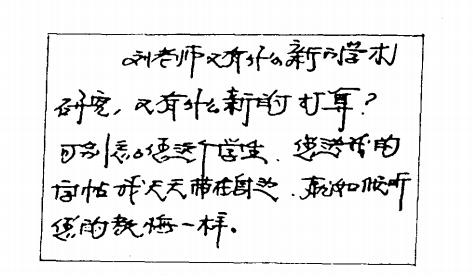 刘老师又有什么新的学术
研究,又有什么新的打算?
可别忘了您这个学生、您送我的
字帖我天天带在身边、就如倾听
您的教悔一样。